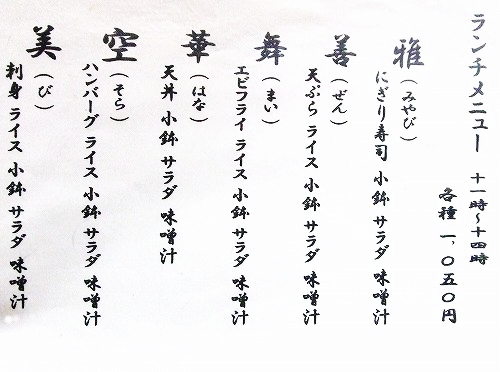 ランチメニュー 十一時~十四時
各種 一、〇五〇円
雅(みやび)
にぎり寿司 小鉢 サラダ 味噌汁
善(ぜん)
天ぷら ライス 小鉢 サラダ 味噌汁
舞(まい)
エビフライ ライス 小鉢 サラダ 味噌汁
華(はな)
天丼 小鉢 サラダ 味噌汁
空(そら)
ハンバーグ ライス 小鉢 サラダ 味噌汁
美(び)
刺身 ライス 小鉢 サラダ 味噌汁